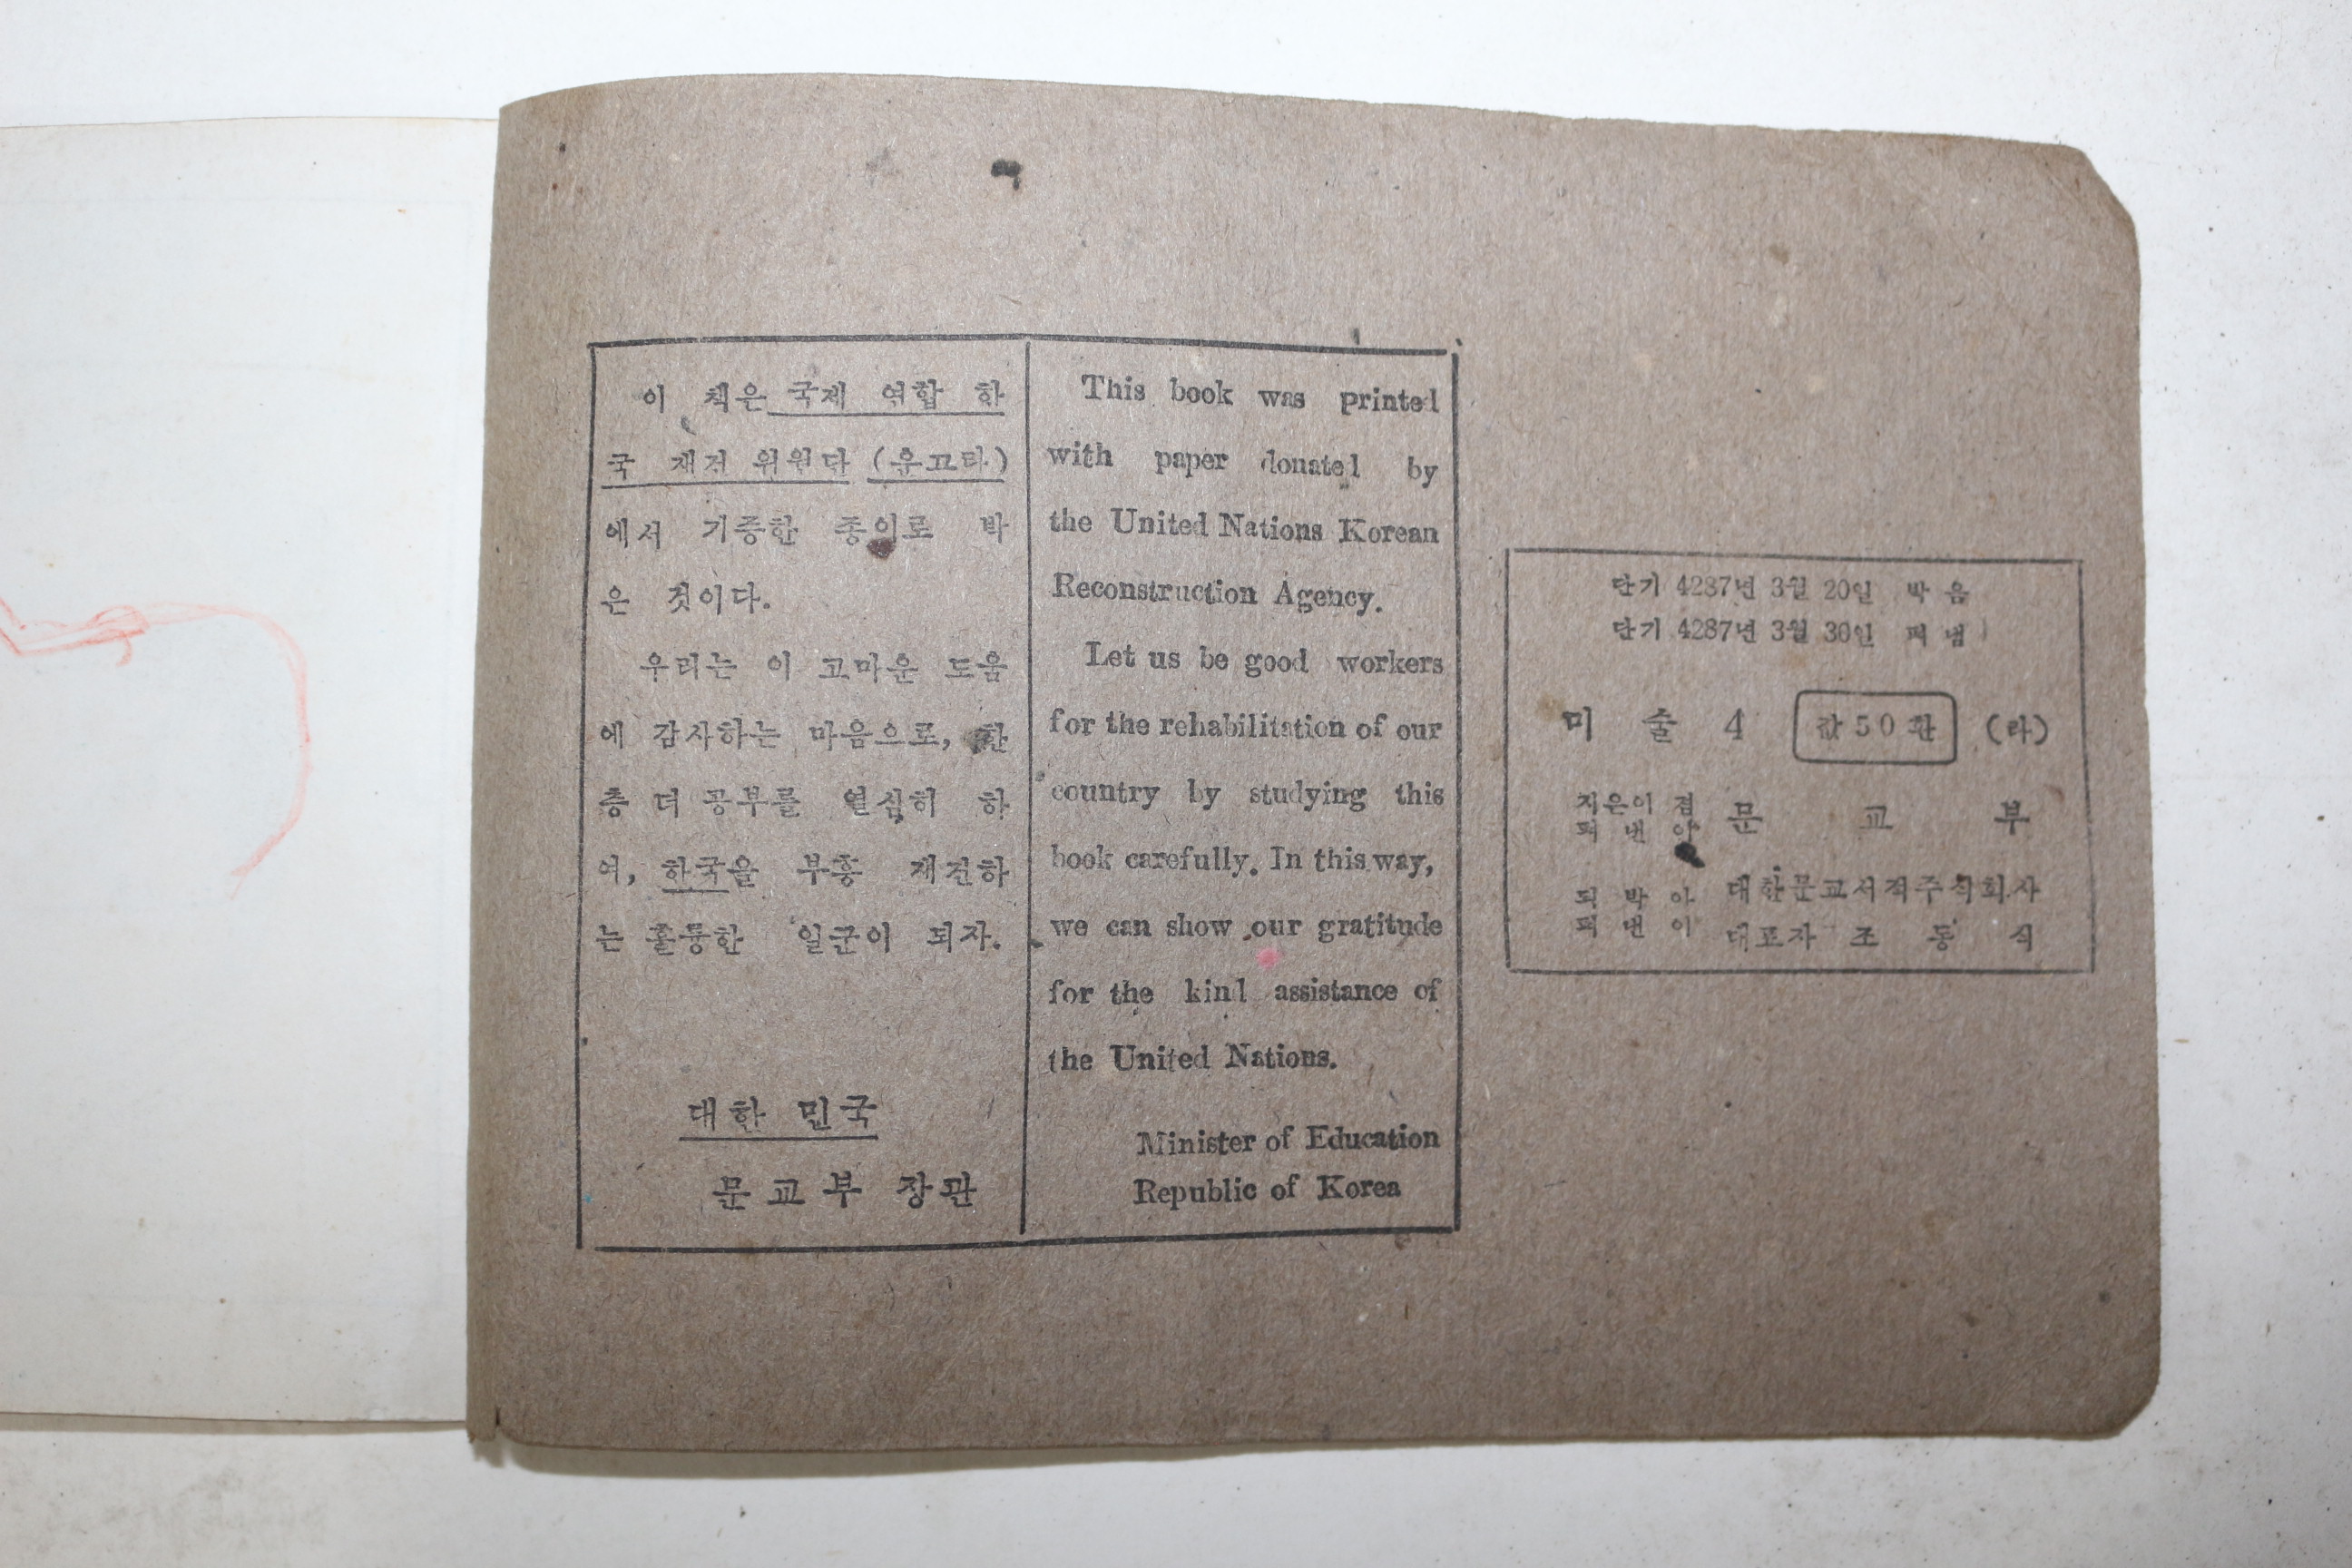 이 책은 국제 연합 한
국 재건 위원단 (운끄라)
에서 기증한 종이로 박
은 것이다.
우리는 이 고마운 도움
에 감사하는 마음으로, 한
층 더 공부를 열심히 하
여, 한국을 부흥 재건하
는 훌륭한 일군이 되자.
대한 민국
문교부 장관
This book was printed
with paper donated by
the United Nations Korean
Reconstruction Agency.
Let us be good workers
for the rehabilitation of our
country by studying this
book carefully. In this way,
we can show our gratitude
for the kind assistance of
the United Nations.
Minister of Education
Republic of Korea
단기 4287년 3월 20일 박음
단기 4287년 3월 30일 펴냄
미술 4 값 50환 (라)
지은이 겸
펴낸이 문교부
박아
펴낸이 대한문교서적주식회사
대표자 조동식